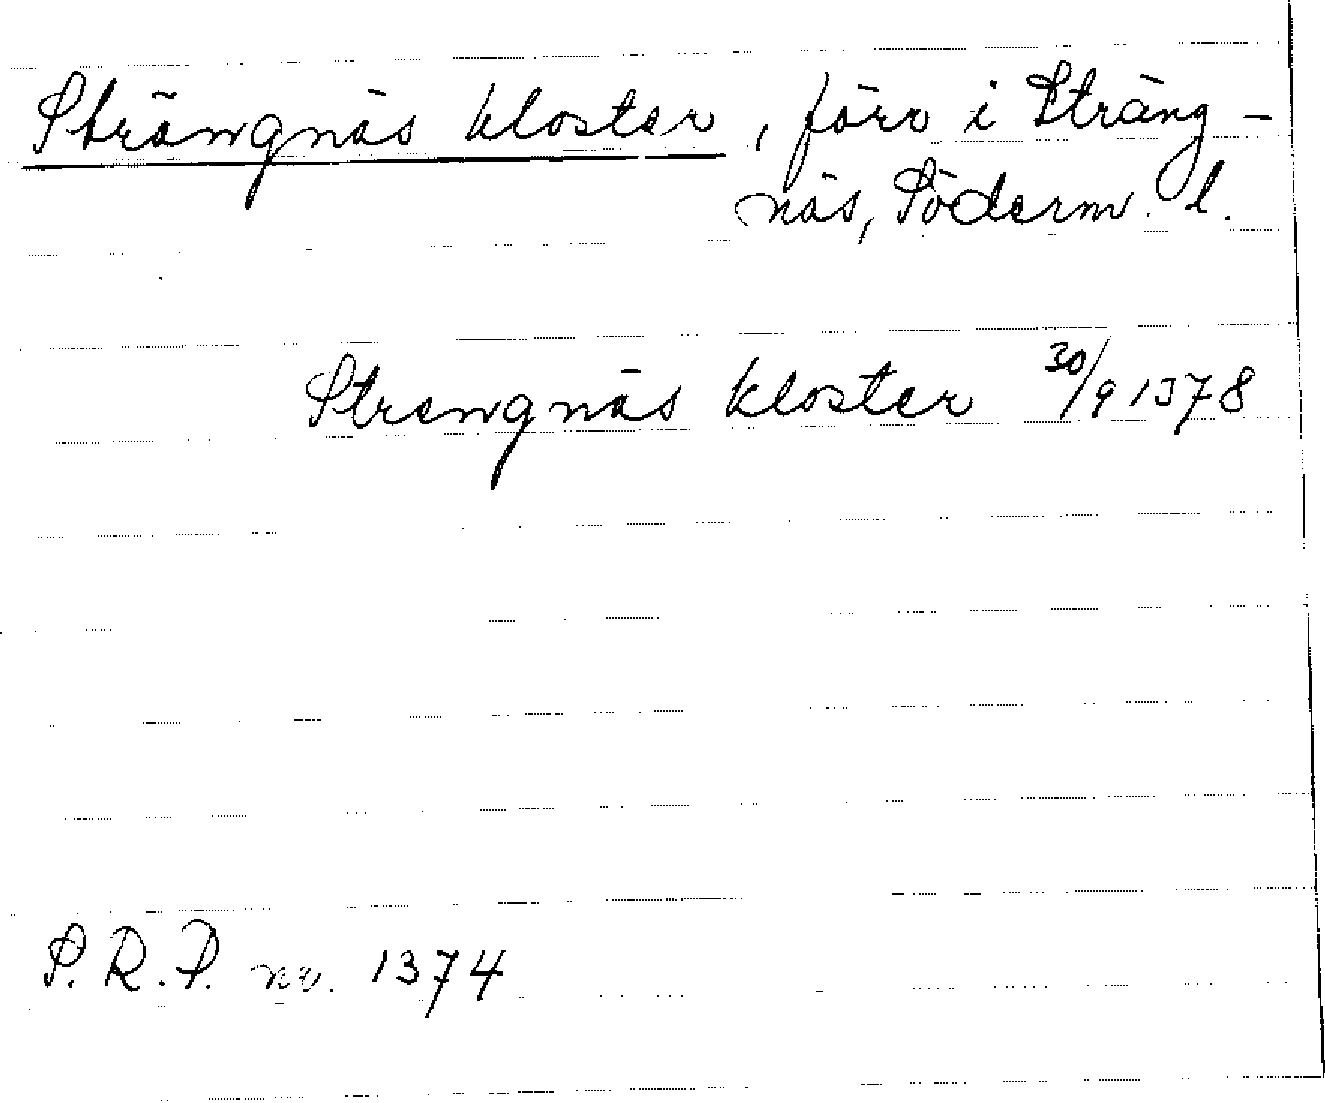 Strängnäs kloster, förr i Sträng-
näs, Söderm. l.
Strengnäs kloster 30/9 1378
S.R.P. nr. 1374